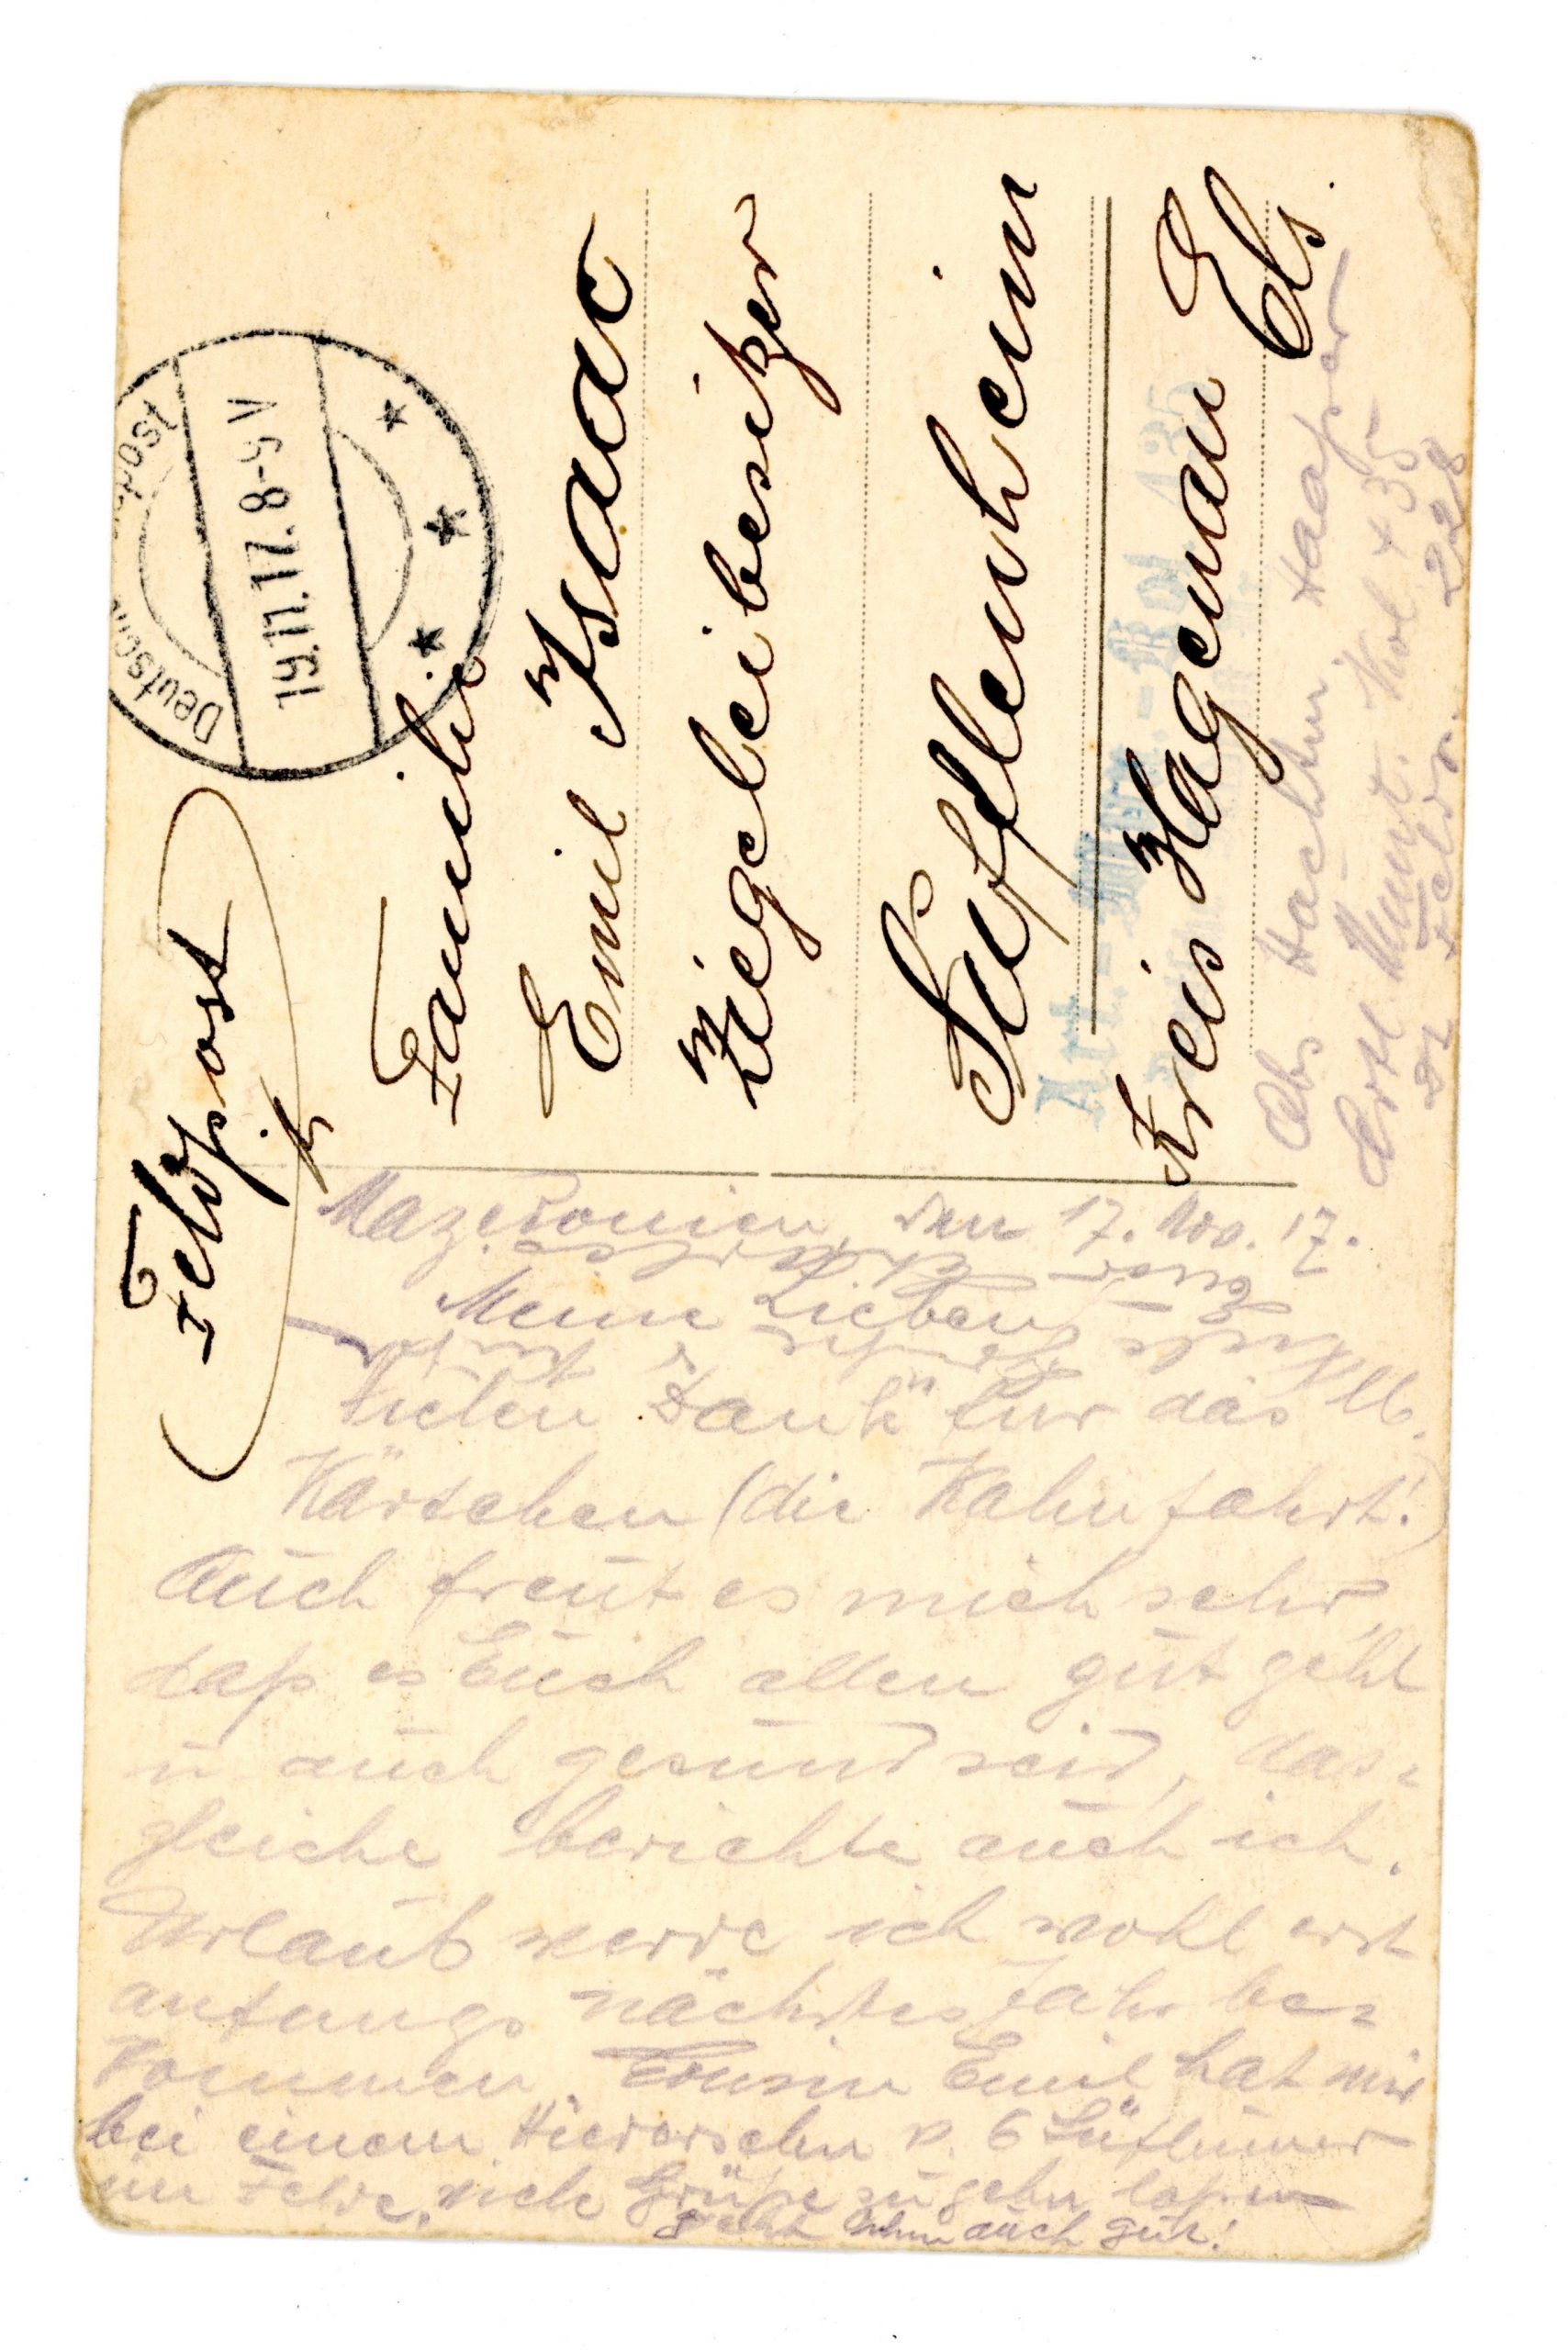 Feldpost
Deutsche
19.11.17. 8-9 V
Familie
Emil Isaac
Ziegeleibesitzer
Sufflenheim
Kreis Hagenau Els.
Art.-Mun.-Kol.
Abs
Artl. Munt. Kol + 35
Dt Feldp. 228
Mazedonien, den 17. Nov. 17.
Meine Lieben!
Vielen Dank für das lb.
Kärtchen (die Kahnfahrt!)
Auch freut es mich sehr,
daß es Euch allen gut geht
u auch gesund seid, das=
gleiche berichte auch ich.
Urlaub werde ich wohl erst
anfangs nächstes Jahr be=
kommen. Cousin Emil hat mir
bei einem
im Felde, viele Grüße zu gebn laßen
geht ihm auch gut!
Euer